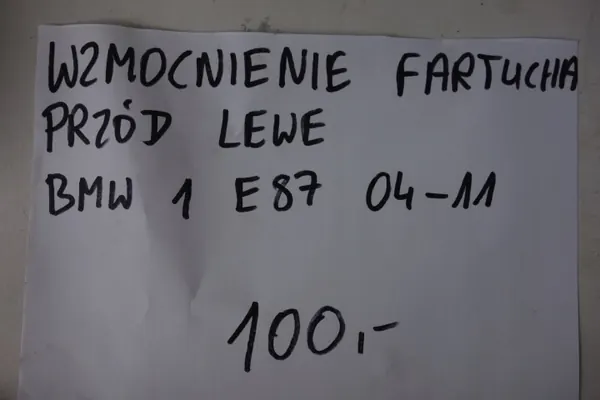 WZMOCNIENIE FARTUCHA
PRZÓD LEWE
BMW 1 E87 04-11
100,-